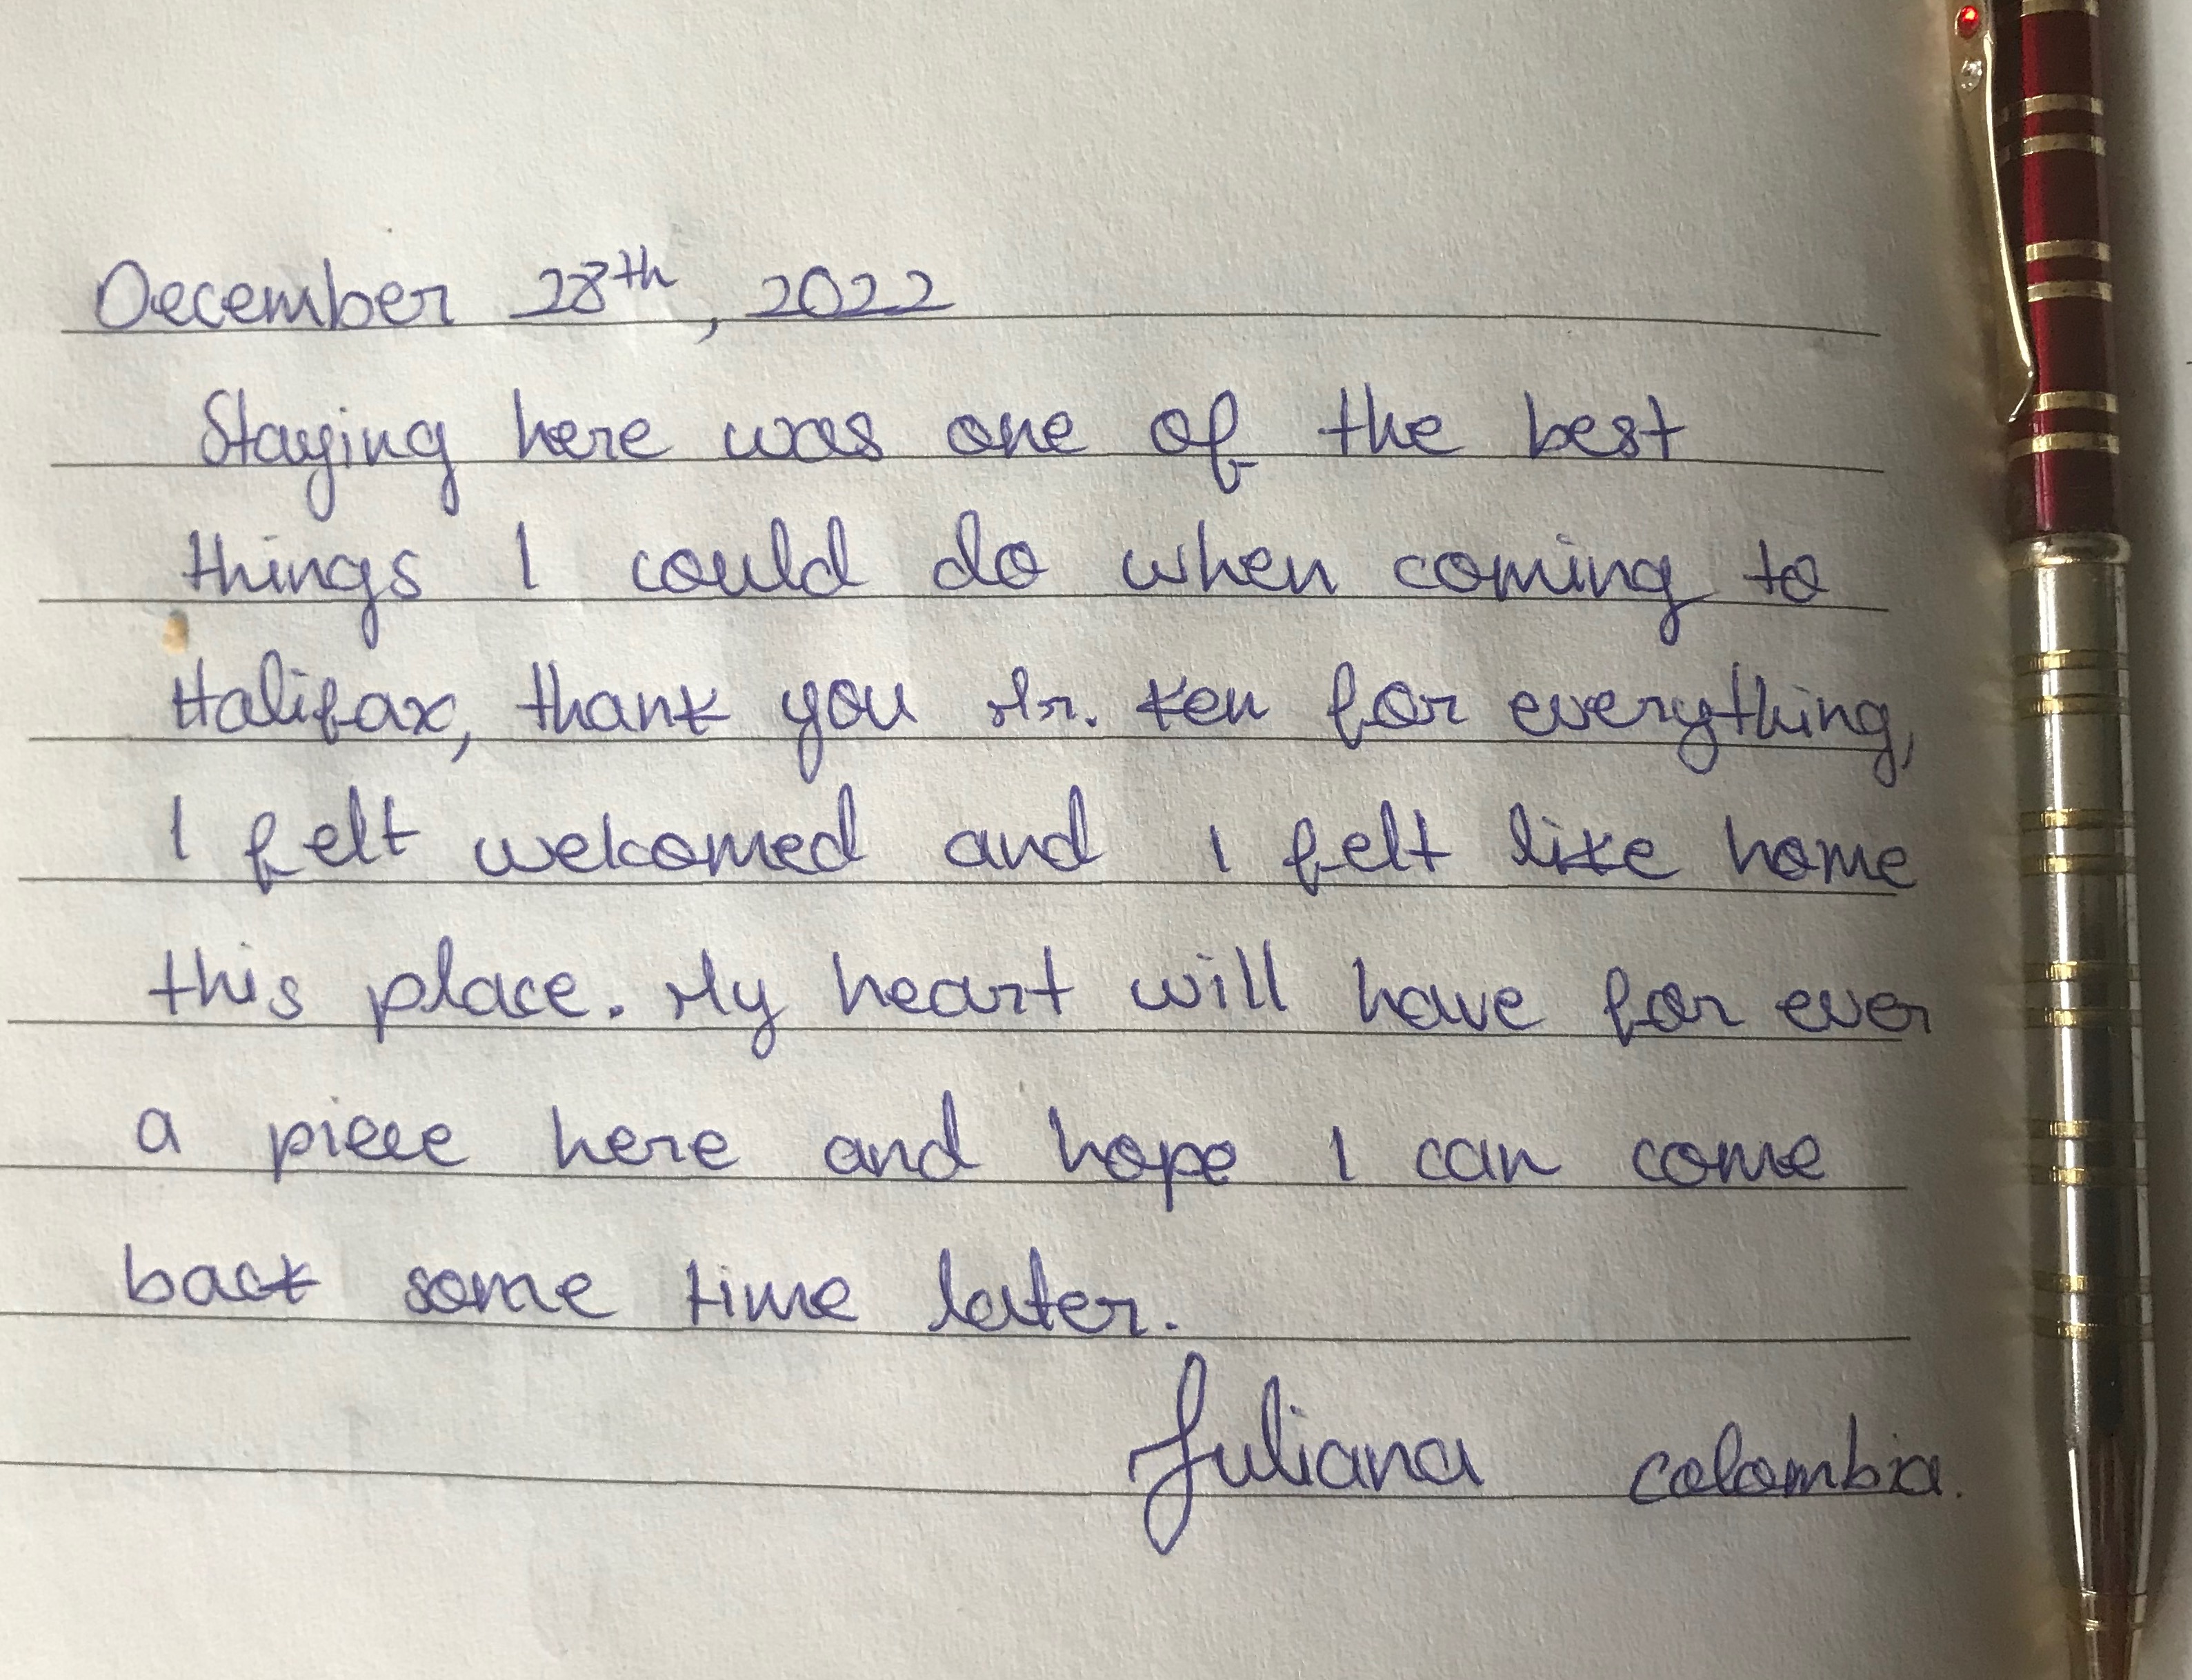 December 28th, 2022
Staying here was one of the best
things I could do when coming to
Halifax, thank you Mr. Ken for everything,
I felt welcomed and I felt like home
this place. My heart will have for ever
a piece here and hope I can come
back some time later.
Juliana colombia.